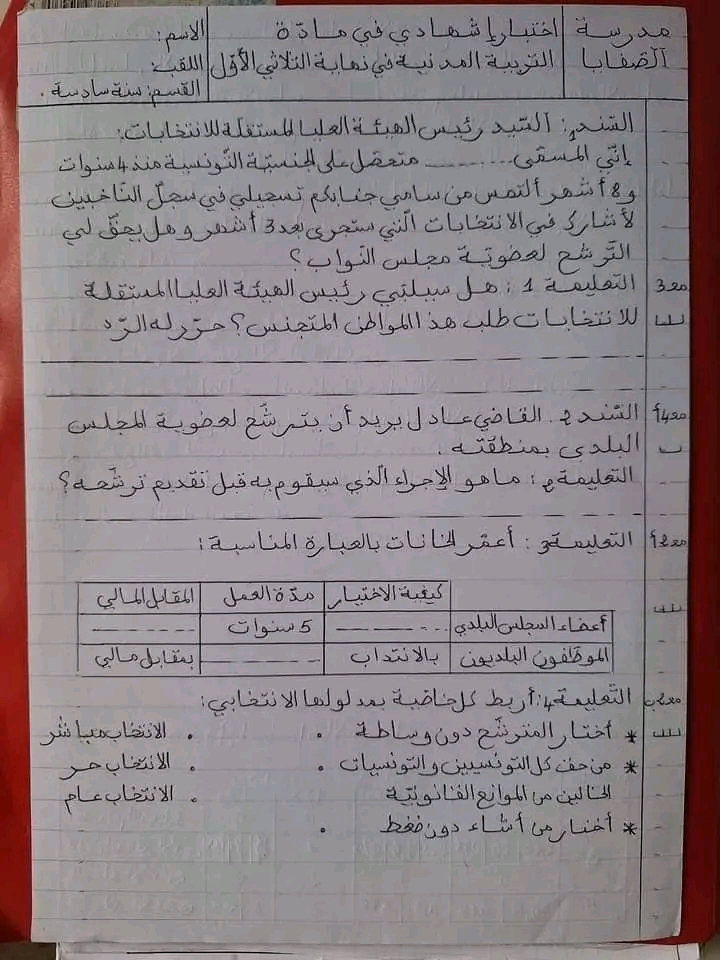 مدرسة الصفايا
اختبار إشهادي في مادّة
التربية المدنية في نهاية الثلاثي الأوّل
الاسم:
اللقب:
القسم: سنة سادسة.
السّند1: السّيد رئيس الهيئة العليا المستقلة للانتخابات:
إنّي المسمّى ......... متحصّل على الجنسيّة التّونسية منذ 4 سنوات
و 8 أشهر ألتمس من سامي جنابكم تسجيلي في سجلّ النّاخبين
لأشارك في الانتخابات الّتي ستجرى بعد 3 أشهر و هل يحقّ لي
التّرشح لعضويّة مجلس النّواب؟
مع3
التعليمة 1: هل سيلبّي رئيس الهيئة العليا المستقلة
للانتخابات طلب هذا المواطن المتجنس؟ حرّر له الرّد
مع4أ
السّند 2. القاضي عادل يريد أن يترشّح لعضوية المجلس
البلدي بمنطقته.
التعليمة2: ما هو الإجراء الّذي سيقوم به قبل تقديم ترشّحه؟
مع2أ
التعليمة3: أعمّر الخانات بالعبارة المناسبة:
كيفية الاختيار | مدّة العمل | المقابل المالي
أعضاء المجلس البلدي | ------ | 5 سنوات | ------
الموظّفون البلديون | بالانتداب | ------ | بمقابل مالي
مع2ب
التّعليمة4: أربط كل خاصّية بمدلولها الانتخابي:
* أختار المترشّح دون وساطة . . الانتخاب مباشر
* من حقّ كل التونسيين والتونسيات . . الانتخاب حر
الخالين من الموانع القانونيّة . الانتخاب عام
* أختار من أشاء دون ضغط .